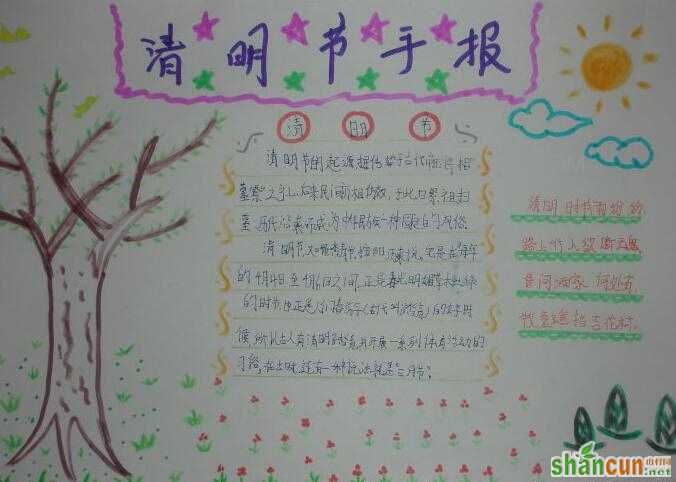 清明节手报
清明节
清明节的起源据传始于古代帝王将相
墓祭之礼，后来民间相仿效，于此日祭祖扫
墓，历代沿袭而成为中华民族一种固定的风俗。
清明节
的4月4日至4月6日之间，正是春光明媚草木吐绿
的时节，也正是人们春游（古代叫踏青）的好时
候，所以古人有清明踏青，并开展一系列体育活动的
习俗。在古时，还有一种说法就是“三月节”。
清明时节雨纷纷
路上行人欲断魂
借问酒家何处有
牧童遥指杏花村。
shancun
山村网
.net